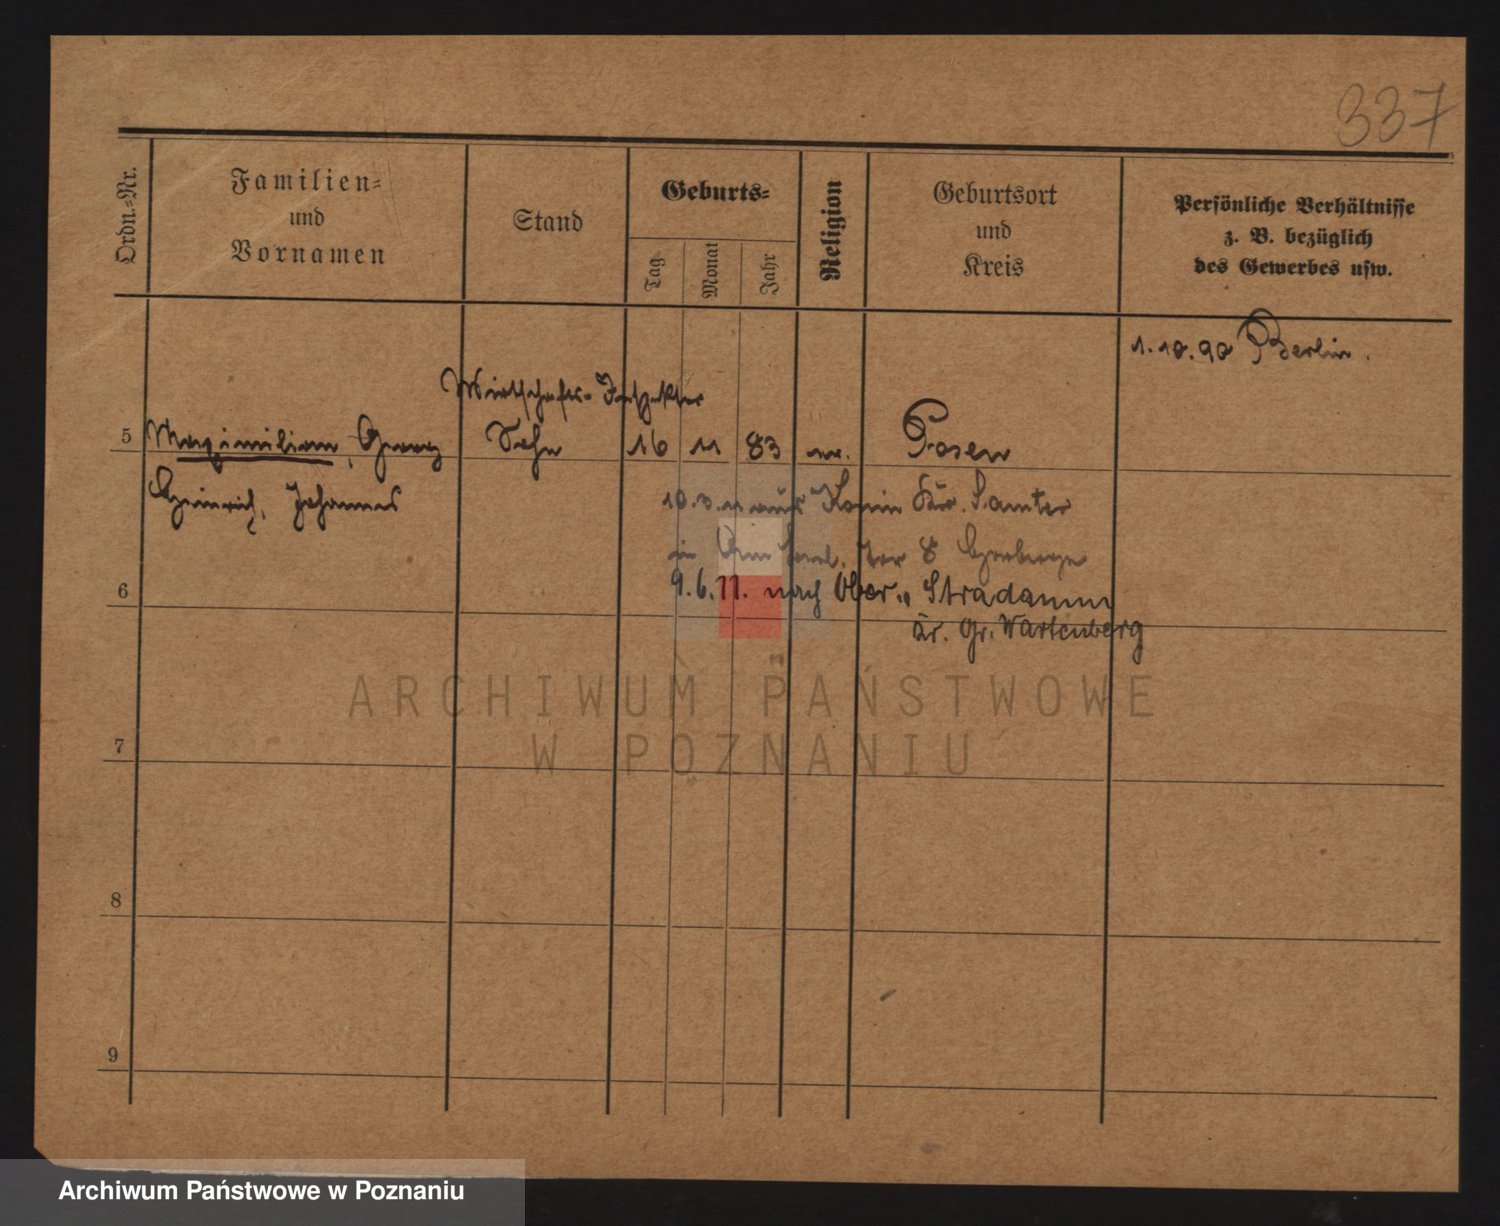 337
Ordn.-Nr.
Familien-
und
Vornamen
Stand
Geburts-
Tag
Monat
Jahr
Religion
Geburtsort
und
Kreis
Persönliche Verhältnisse
z. B. bezüglich
des Gewerbes usw.
1.10.90 Berlin.
Wirtschafts-Inspektor
5 Maximilian, Georg Sohn 16 11 83 Posen
Heinrich, Johannes
aus Konin Kr. Samter
in
6 9.6.11. nach Ober- Stradamm
Kr. Gr. Wartenberg
ARCHIWUM PAŃSTWOWE
W POZNANIU
7
8
9
Archiwum Państwowe w Poznaniu